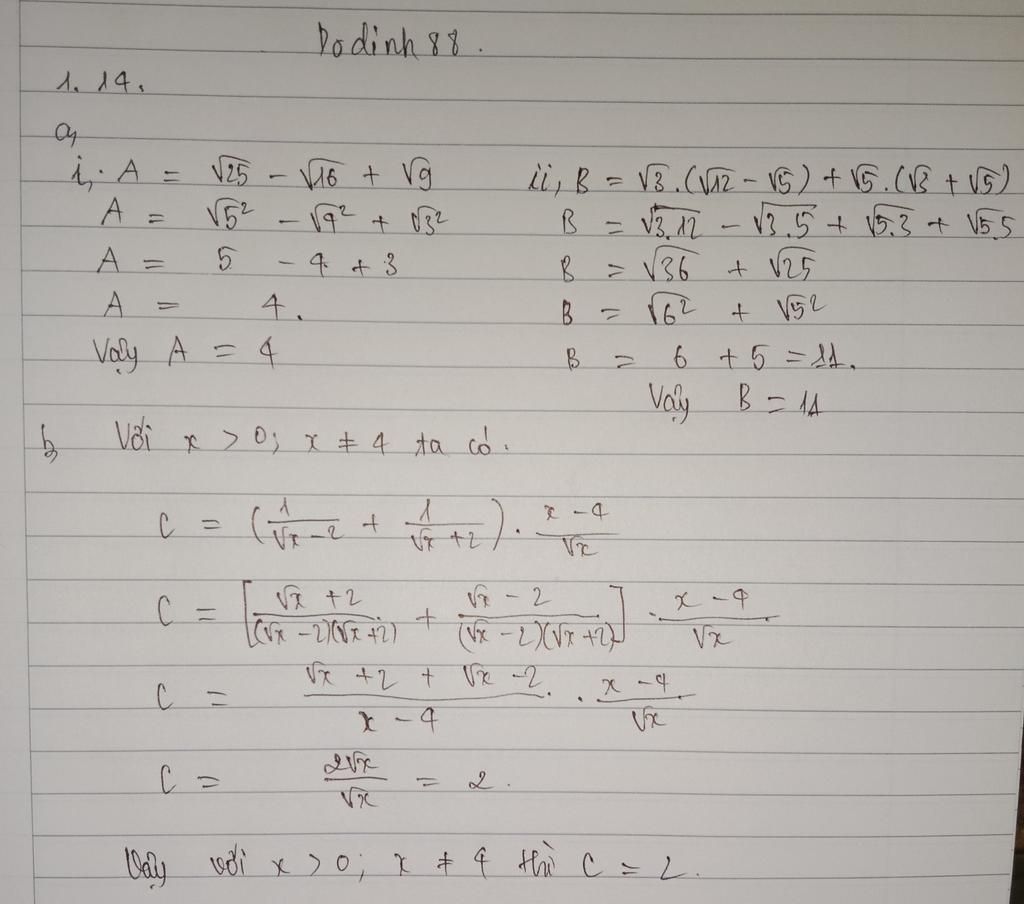 Dodinh 88.
1. 14.
a,
i, A = √25 - √16 + √9
A = √5² - √4² + √3²
A = 5 - 4 + 3
A = 4.
Vậy A = 4
ii, B = √3.(√12 - √5) + √5.(√3 + √5)
B = √3.12 - √3.5 + √5.3 + √5.5
B = √36 + √25
B = √6² + √5²
B = 6 + 5 = 11.
Vậy B = 11
b, Với x > 0; x ≠ 4 ta có.
C = (1/(√x - 2) + 1/(√x + 2)) . (x - 4)/√x
C = [(√x + 2)/((√x - 2)(√x + 2)) + (√x - 2)/((√x - 2)(√x + 2))] . (x - 4)/√x
C = (√x + 2 + √x - 2)/(x - 4) . (x - 4)/√x
C = 2√x/√x = 2.
Vậy với x > 0; x ≠ 4 thì C = 2.